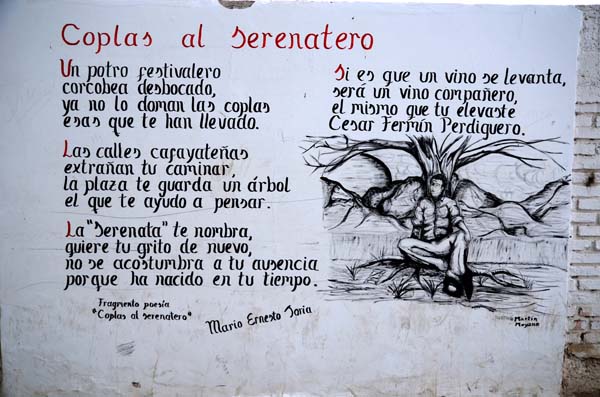 Coplas al Serenatero
Un potro festivalero
corcobea desbocado,
ya no lo doman las coplas
esas que te han llevado.
Las calles cafayateñas
extrañan tu caminar,
la plaza te guarda un árbol
el que te ayudo a pensar.
La "Serenata" te nombra,
quiere tu grito de nuevo,
no se acostumbra a tu ausencia
porque ha nacido en tu tiempo.
Si es que un vino se levanta,
será un vino compañero,
el mismo que tu elevaste
Cesar Fermín Perdiguero.
Fragmento poesía
"Coplas al serenatero"
Mario Ernesto Soria
Martín
Moyano